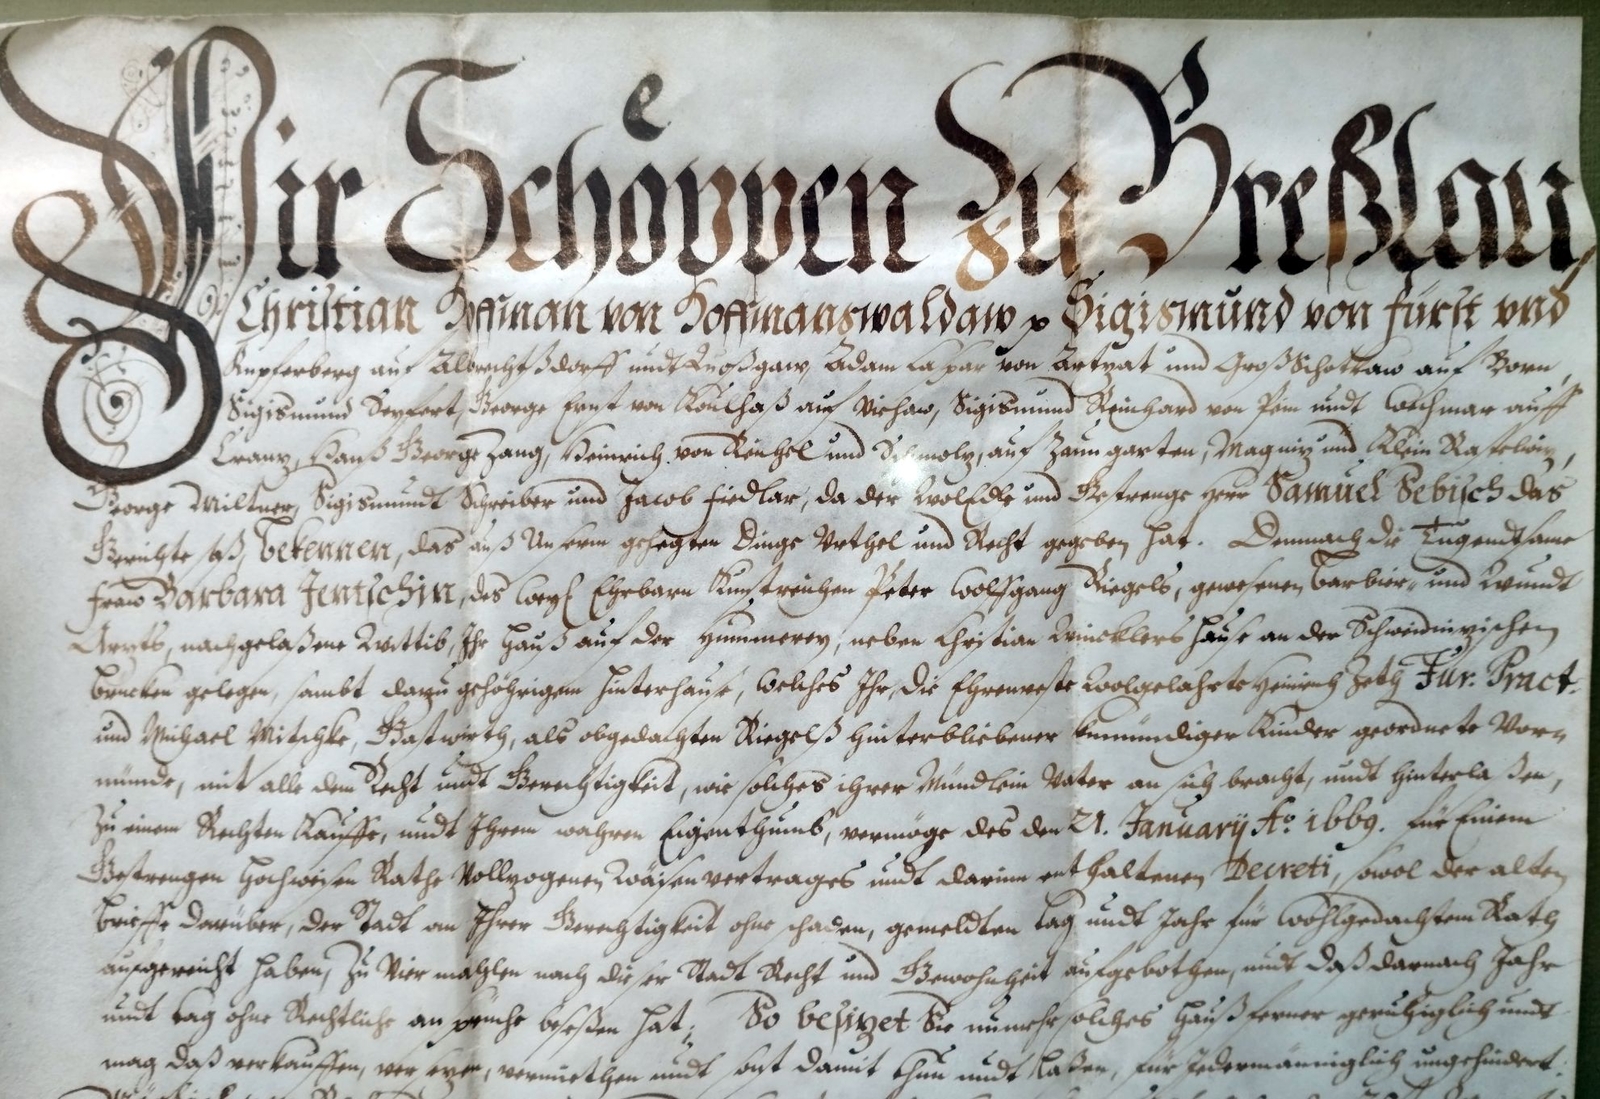 Wir Schöppen zu Breßlau,
Christian Hoffman von Hoffmanswaldaw p Sigismund von fürst vnd
Kupferberg auf Albrechtßdorff undt Adam Caspar von Artzat und GroßSchottkaw auf Born,
Sigismund Seyfert, George Ernst von auf Vichaw, Sigismund Reinhard von undt Wechmar auff
Crantz, Hanß George Zang, Heinrich von Reichel und Schmoltz, auf Zaumgarten, Magnitz und Klein
George Miltner, Sigismundt Schreiber und Jacob Fiedlar, da der WolEdle und Gestrenge Herr Samuel Sebisch das
Gerichte saß, bekennen, das auß Unserm gehegten Dinge Urthel und Recht gegeben hat. Demnach die Tugendtsame
fraw Barbara Jentschin, des Weyl Ehrbarn Kunstreichen Peter Wolfgang Riegels, gewesenen Barbier- und Wundt
Artzts, nachgelaßene Wittib, Ihr Hauß auf der Hummerey, neben Christian Wincklers Hause an der Schweidnizischen
brucken gelegen, sambt darzu gehöhrigem hinterhause, welches Ihr, die Ehrenveste Wolgelahrte Heinrich Jur. Pract:
und Michael Mitschke, Gastwirth, als obgedachten Riegelß hinterbliebener unmündiger Kinder geordnete Vor-
münde, mit alle dem Recht undt Gerechtigkeit, wie solches ihrer Mündlein Vater an sich bracht, undt hinterlaßen,
zu einem Rechten Kauffe, undt Ihrem wahren Eigenthumb, vermöge des den 21. Januarij Ao. 1669. für Einem
Gestrengen Hochweisen Rathe Vollzogenen Wäisenvertrages undt darinn enthaltenen Decreti, sowol der alten
brieffe darüber, der Stadt an Ihrer Gerechtigkeit ohne schaden, gemeldten tag undt Jahr für wohlgedachtem Rath
aufgereicht haben, zu Viermahlen nach dieser Stadt Recht und Gewohnheit aufgebothen, undt daß darnach Jahr
undt tag ohne Rechtliche ansprüche beseßen hat; So besizet Sie nunmehr solches Hauß ferner geruhiglich undt
mag daß verkauffen, versezen, vermiethen undt sonst damit thun undt laßen, für Jedermänniglich ungehindert: